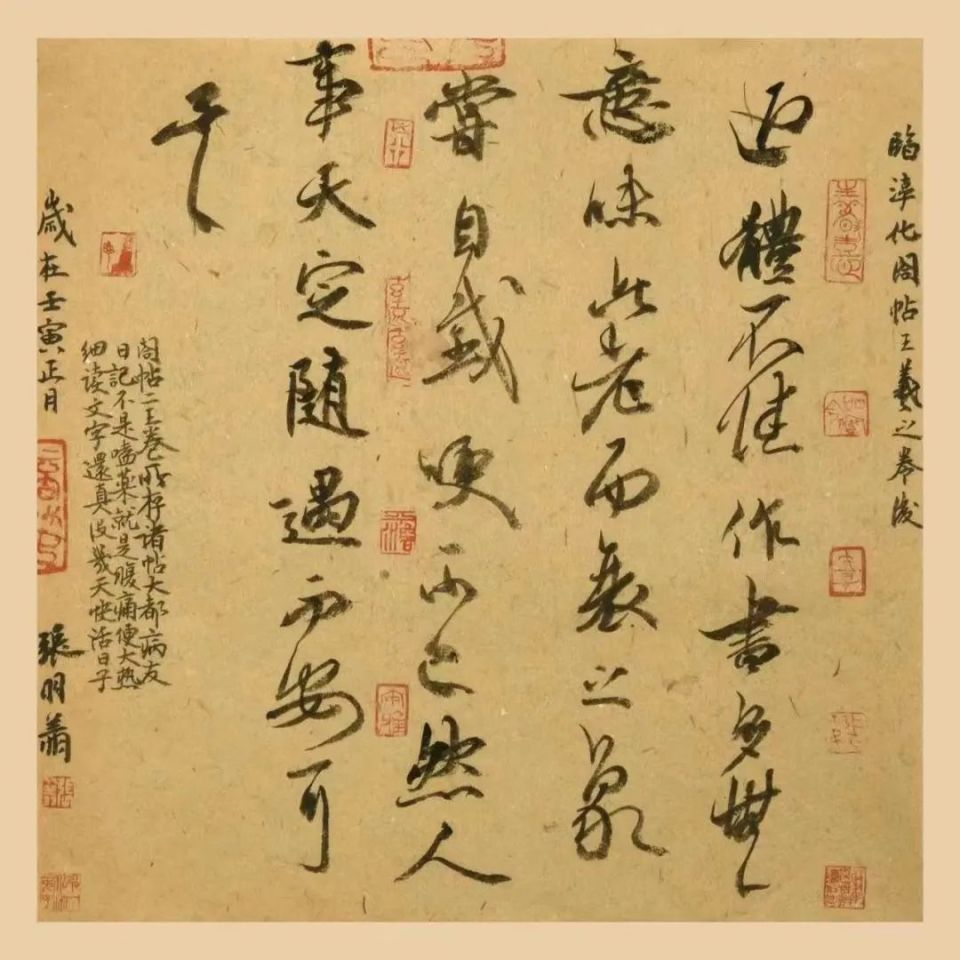 臨淳化閣帖王羲之卷後
近體不佳作書多無
意味此老而衰之象
嘗自哽不已然人
事天定随遇而安可
乎
阁帖二王卷所存诸帖大都病友
日記不是嗑藥就是腹痛便大热
细读文字還真没幾天快活日子
歲在壬寅正月
張明